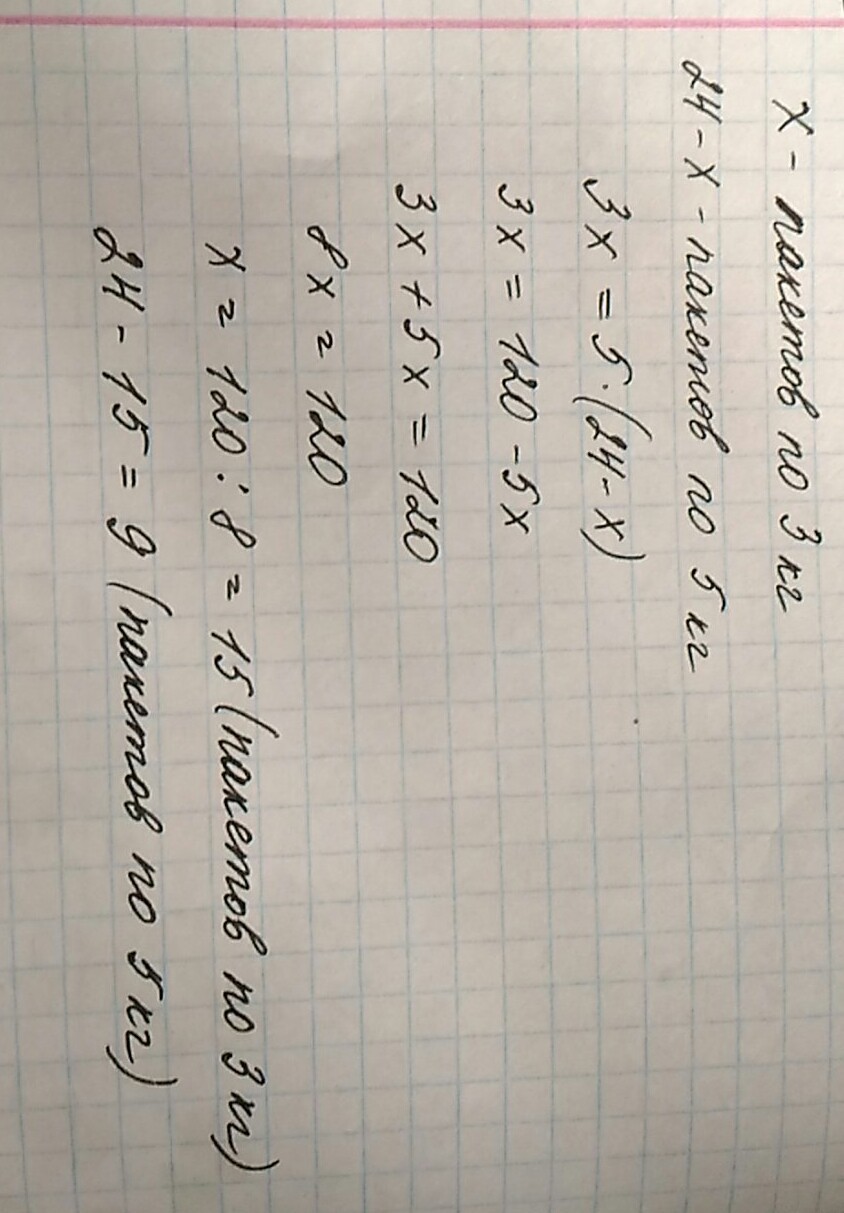 x - пакетов по 3 кг
24 - x - пакетов по 5 кг
3x = 5·(24 - x)
3x = 120 - 5x
3x + 5x = 120
8x = 120
x = 120 : 8 = 15 (пакетов по 3 кг)
24 - 15 = 9 (пакетов по 5 кг)